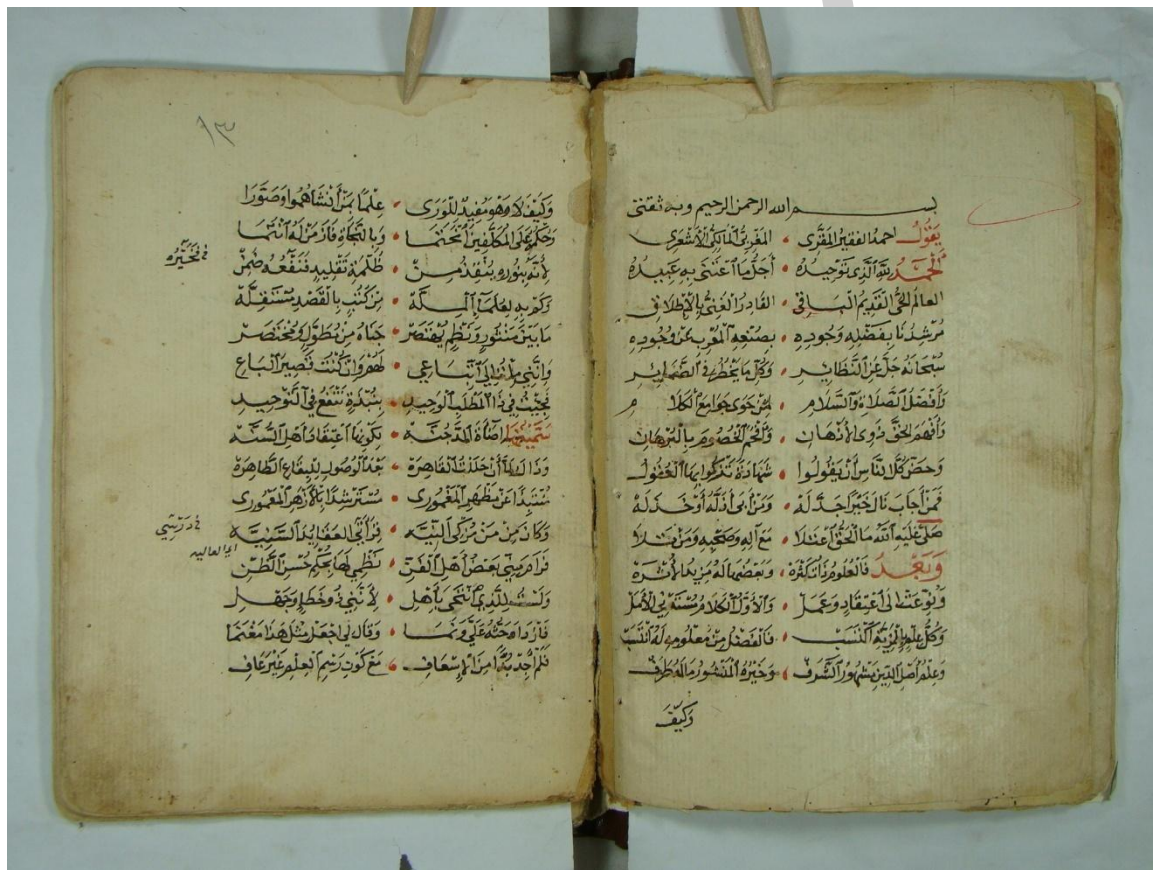 بسم الله الرحمن الرحيم وبه ثقتى
يَقُولُ احمد الفقير المَقَّرى • المغربى المالكى الأشعرى
الحَمْدُ لله الذى تَوْحِيدُه • أجلُّ ما اعْتَنَى به عبيدُه
العالم الحىّ القديم الباقى • القادر الغنىّ بالإطلاق
مُرْشِدُنا بفضله وجوده • بصنعه المعرب عن وجوده
سُبْحانه جلّ عن النظائر • وكل ما يخطر فى الضمائر
وأفضل الصلاة والسلام • من حوى جوامع الكلام
وأفحم الخصوم بالبرهان
وحض كل الناس أن يقولوا • شهادة تذكوا بها العقول
فمن أجاب نال خيرا جذله • ومن أبى أذلّه أو خذله
صلى عليه الله ما الحق اعتلا • مع آله وصحبه ومن تلا
وَبَعْدُ فالعلوم ذات كثره • وبعضها له مزيد الأثره
ونوعت الى اعتقاد وعمل • والأول الكلام مستدنى الأمل
وكل علم للمزية انتسب • فالفضل من معلومه له انتسب
وعلم أصل الدين مشهور الشرف • وخيره المنشور ما له طرف
وكيف
١٣
وكيف لا وهو مفيد للورى • علما بمن أنشاهموا وصورا
وحكمه على المكلفين انحتما • وبالنجاة فاز من له انتما
لأنه بنوره ينقذ من • ظلمة تقليد فنفعه ضمن
فى تحيره
وكم به لعلماء المله • من كتب بالقصد مستقله
ما بين منثور ونظم يختصر • جناه من مطول ومختصر
وانني من الى اتباعى • لهم وان كنت قصير الباع
فجئت فى ذا المطلب الوحيد • بنبذة تنفع فى التوحيد
سميتها إضاءة الدجنه • بكونها اعتقاد أهل السنه
وذاك لما أن حللت القاهره • بعد الوصول للبقاع الطاهره
منتبذا عن مظهر المغمورى • مسترشدا بالأزهر المعمورى
وكان من منّ مزكى النيه • قرأتى العقايد السنيه
فى درسى
فرام منى بعض أهل الفن • نظمى لها بحكم حسن الظن
ولست للذى انتحى بأهل • لأننى ذو خطأ وجهل
فازداد حثه على ونما • وقال لى اجعل مثل هذا مغنما
فلم أجد بدّا من الإسعاف • مع كون رسم العلم غير عاف